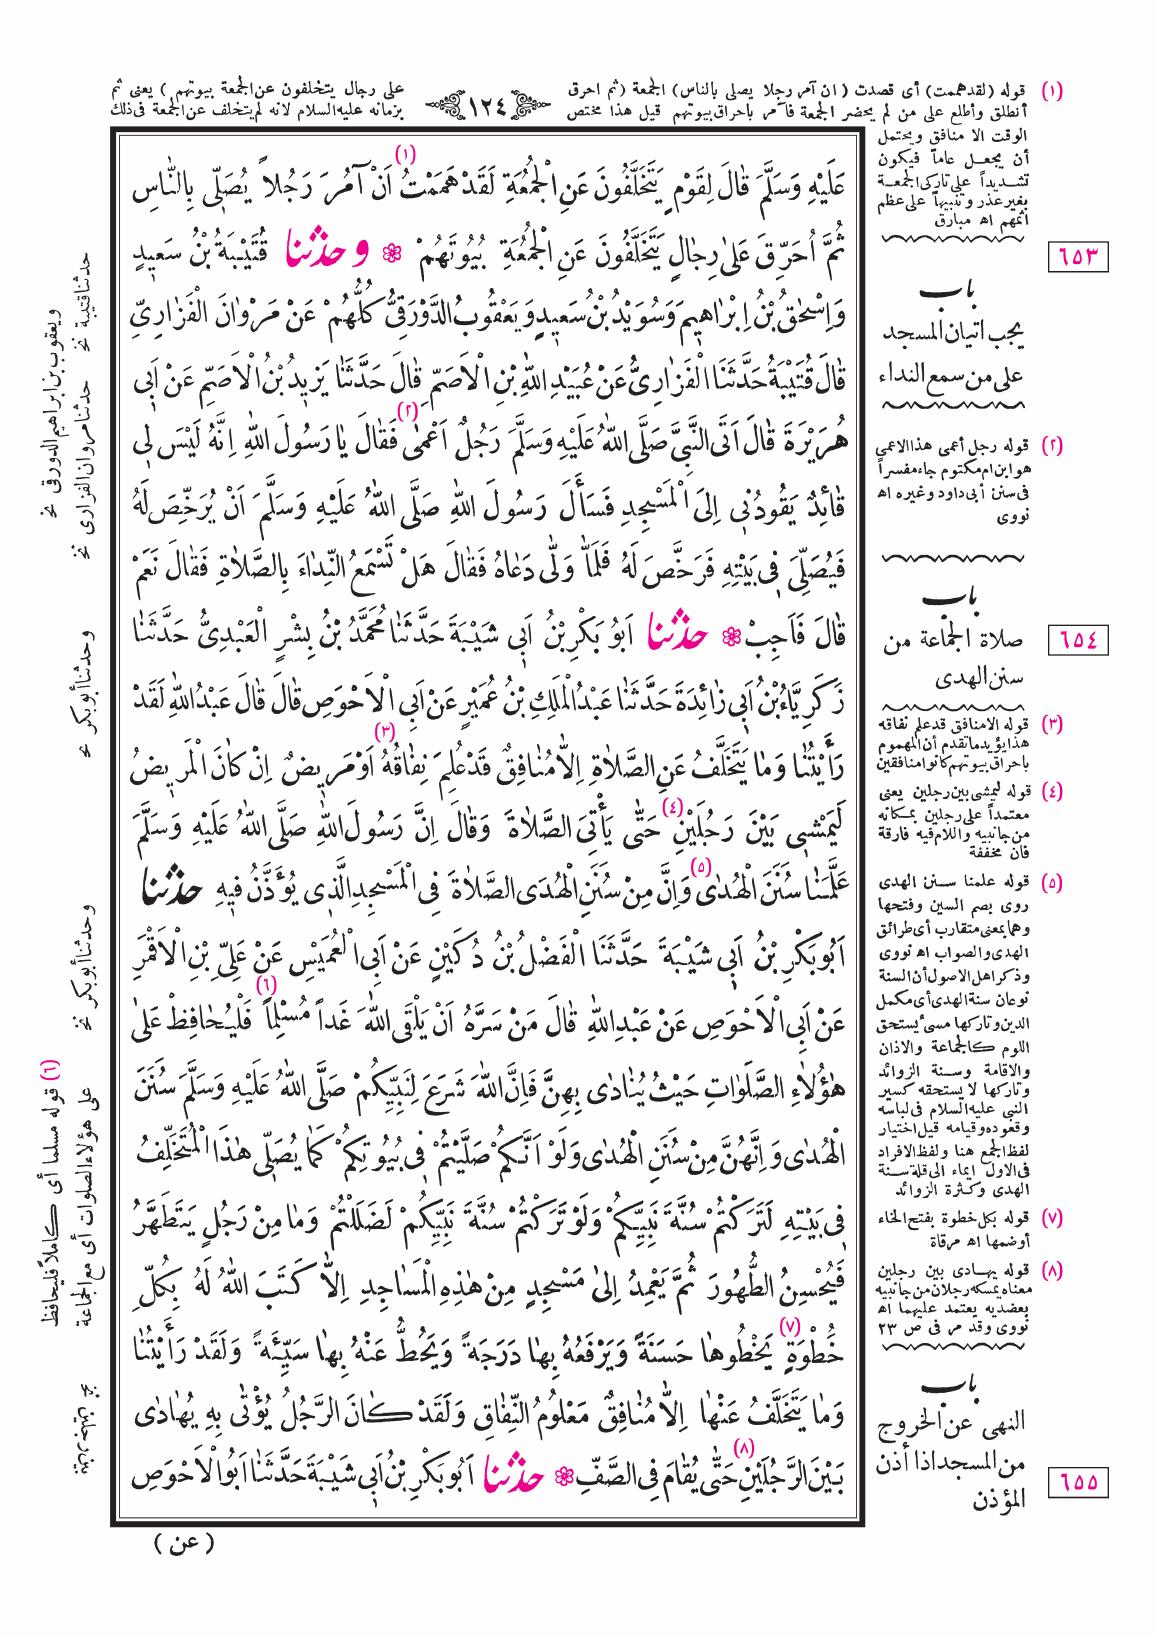 (١) قوله (لقد هممت) أى قصدت ( ان آمر رجلا يصلى بالناس) الجمعة (ثم احرق
على رجال يتخلفون عن الجمعة بيوتهم ) يعنى ثم
أنطلق وأطلع على من لم يحضر الجمعة فآمر باحراق بيوتهم قيل هذا مختص
بزمانه عليه السلام لانه لم يتخلف عن الجمعة فى ذلك
١٢٤
الوقت الا منافق ويحتمل
أن يجعل عاماً فيكون
تشديداً على تاركى الجمعة
بغير عذر وتنبيهاً على عظم
اثمهم اه مبارق
عَلَيْهِ وَسَلَّمَ قَالَ لِقَوْمٍ يَتَخَلَّفُونَ عَنِ الْجُمُعَةِ لَقَدْ هَمَمْتُ (١) اَنْ آمُرَ رَجُلاً يُصَلِّى بِالنَّاسِ
ثُمَّ اُحَرِّقَ عَلىٰ رِجَالٍ يَتَخَلَّفُونَ عَنِ الْجُمُعَةِ بُيُوتَهُمْ ❁ و حدثنا قُتَيْبَةُ بْنُ سَعِيدٍ
وَاِسْحٰقُ بْنُ اِبْرَاهِيمَ وَسُوَيْدُ بْنُ سَعِيدٍ وَيَعْقُوبُ الدَّوْرَقِىُّ كُلُّهُمْ عَنْ مَرْوَانَ الْفَزَارِىِّ
قَالَ قُتَيْبَةُ حَدَّثَنَا الْفَزَارِىُّ عَنْ عُبَيْدِ اللّٰهِ بْنِ الْاَصَمِّ قَالَ حَدَّثَنَا يَزِيدُ بْنُ الْاَصَمِّ عَنْ اَبِى
هُرَيْرَةَ قَالَ اَتَى النَّبِىَّ صَلَّى اللّٰهُ عَلَيْهِ وَسَلَّمَ رَجُلٌ اَعْمٰى (٢) فَقَالَ يَا رَسُولَ اللّٰهِ اِنَّهُ لَيْسَ لِى
قَائِدٌ يَقُودُنِى اِلَى الْمَسْجِدِ فَسَأَلَ رَسُولَ اللّٰهِ صَلَّى اللّٰهُ عَلَيْهِ وَسَلَّمَ اَنْ يُرَخِّصَ لَهُ
فَيُصَلِّىَ فِى بَيْتِهِ فَرَخَّصَ لَهُ فَلَمَّا وَلّٰى دَعَاهُ فَقَالَ هَلْ تَسْمَعُ النِّدَاءَ بِالصَّلَاةِ فَقَالَ نَعَمْ
قَالَ فَاَجِبْ ❁ حدثنا اَبُو بَكْرِ بْنُ اَبِى شَيْبَةَ حَدَّثَنَا مُحَمَّدُ بْنُ بِشْرٍ الْعَبْدِىُّ حَدَّثَنَا
زَكَرِيَّاءُ بْنُ اَبِى زَائِدَةَ حَدَّثَنَا عَبْدُ الْمَلِكِ بْنُ عُمَيْرٍ عَنْ اَبِى الْاَحْوَصِ قَالَ قَالَ عَبْدُ اللّٰهِ لَقَدْ
رَأَيْتُنَا وَمَا يَتَخَلَّفُ عَنِ الصَّلَاةِ اِلاَّ مُنَافِقٌ قَدْ عُلِمَ نِفَاقُهُ (٣) اَوْ مَرِيضٌ اِنْ كَانَ الْمَرِيضُ
لَيَمْشِى بَيْنَ رَجُلَيْنِ (٤) حَتّٰى يَأْتِىَ الصَّلَاةَ وَقَالَ اِنَّ رَسُولَ اللّٰهِ صَلَّى اللّٰهُ عَلَيْهِ وَسَلَّمَ
عَلَّمَنَا سُنَنَ الْهُدٰى (٥) وَاِنَّ مِنْ سُنَنِ الْهُدَى الصَّلَاةَ فِى الْمَسْجِدِ الَّذِى يُؤَذَّنُ فِيهِ حدثنا
اَبُو بَكْرِ بْنُ اَبِى شَيْبَةَ حَدَّثَنَا الْفَضْلُ بْنُ دُكَيْنٍ عَنْ اَبِى الْعُمَيْسِ عَنْ عَلِىِّ بْنِ الْاَقْمَرِ
عَنْ اَبِى الْاَحْوَصِ عَنْ عَبْدِ اللّٰهِ قَالَ مَنْ سَرَّهُ اَنْ يَلْقَى اللّٰهَ غَداً مُسْلِماً (٦) فَلْيُحَافِظْ عَلىٰ
هٰؤُلَاءِ الصَّلَوَاتِ حَيْثُ يُنَادٰى بِهِنَّ فَاِنَّ اللّٰهَ شَرَعَ لِنَبِيِّكُمْ صَلَّى اللّٰهُ عَلَيْهِ وَسَلَّمَ سُنَنَ
الْهُدٰى وَاِنَّهُنَّ مِنْ سُنَنِ الْهُدٰى وَلَوْ اَنَّكُمْ صَلَّيْتُمْ فِى بُيُوتِكُمْ كَمَا يُصَلِّى هٰذَا الْمُتَخَلِّفُ
فِى بَيْتِهِ لَتَرَكْتُمْ سُنَّةَ نَبِيِّكُمْ وَلَوْ تَرَكْتُمْ سُنَّةَ نَبِيِّكُمْ لَضَلَلْتُمْ وَمَا مِنْ رَجُلٍ يَتَطَهَّرُ
فَيُحْسِنُ الطُّهُورَ ثُمَّ يَعْمِدُ اِلىٰ مَسْجِدٍ مِنْ هٰذِهِ الْمَسَاجِدِ اِلاَّ كَتَبَ اللّٰهُ لَهُ بِكُلِّ
خُطْوَةٍ (٧) يَخْطُوهَا حَسَنَةً وَيَرْفَعُهُ بِهَا دَرَجَةً وَيَحُطُّ عَنْهُ بِهَا سَيِّئَةً وَلَقَدْ رَأَيْتُنَا
وَمَا يَتَخَلَّفُ عَنْهَا اِلاَّ مُنَافِقٌ مَعْلُومُ النِّفَاقِ وَلَقَدْ كَانَ الرَّجُلُ يُؤْتٰى بِهِ يُهَادٰى
بَيْنَ الرَّجُلَيْنِ (٨) حَتّٰى يُقَامَ فِى الصَّفِّ ❁ حدثنا اَبُو بَكْرِ بْنُ اَبِى شَيْبَةَ حَدَّثَنَا اَبُو الْاَحْوَصِ
( عن )
٦٥٣
باب
يجب اتيان المسجد
على من سمع النداء
(٢) قوله رجل أعمى هذا الاعمى
هو ابن ام مكتوم جاء مفسراً
فى سنن أبى داود وغيره اه
نووى
٦٥٤
باب
صلاة الجماعة من
سنن الهدى
(٣) قوله الا منافق قد علم نفاقه
هذا يؤيد ما تقدم أن المهموم
باحراق بيوتهم كانوا منافقين
(٤) قوله ليمشى بين رجلين يعنى
معتمداً على رجلين يمسكانه
من جانبيه واللام فيه فارقة
فان مخففة
(٥) قوله علمنا سنن الهدى
روى بضم السين وفتحها
وهما بمعنى متقارب أى طرائق
الهدى والصواب اه نووى
وذكر اهل الاصول أن السنة
نوعان سنة الهدى أى مكمل
الدين وتاركها مسئ يستحق
اللوم كالجماعة والاذان
والاقامة وسنة الزوائد
وتاركها لا يستحقه كسير
النبى عليه السلام فى لباسه
وقعوده وقيامه قيل اختيار
لفظ الجمع هنا ولفظ الافراد
فى الاول ايماء الى قلة سنة
الهدى وكثرة الزوائد
(٧) قوله بكل خطوة بفتح الخاء
أوضمها اه مرقاة
(٨) قوله يهادى بين رجلين
معناه يمسكه رجلان من جانبيه
بعضديه يعتمد عليهما اه
نووى وقد مر فى ص ٢٣
باب
النهى عن الخروج
من المسجد اذا أذن
المؤذن
٦٥٥
حدثنا قتيبة نخ
ويعقوب بن ابراهيم الدورقى نخ
حدثنا مروان الفزارى نخ
وحدثنا أبوبكر نخ
وحدثنا أبوبكر نخ
(٦) قوله مسلما أى كاملاً فليحافظ
على هؤلاء الصلوات أى مع الجماعة